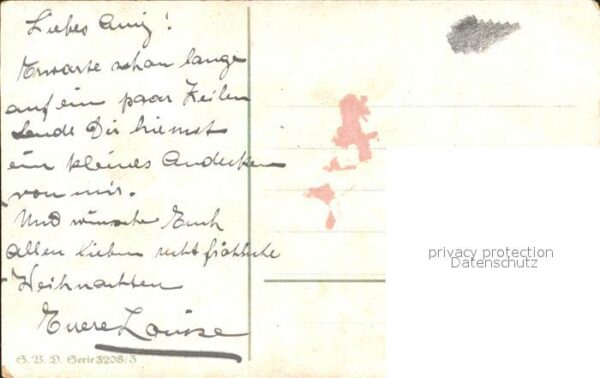 Liebes Anny!
Erwarte schon lange
auf ein paar Zeilen
Sende Dir hiemit
ein kleines Andecken
von mir.
Und wünsche Euch
allen lieben recht fröhliche
Weihnachten
Euere Louise
S. V. D. Serie 3208/3
privacy protection
Datenschutz